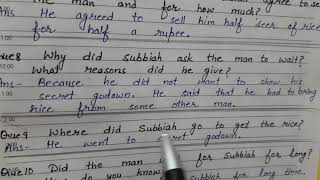 the man and for how much?
Ans- He agreed to sell him half seer of rice
for half a rupee.
Que8 Why did Subbiah ask the man to wait?
What reasons did he give?
Ans- Because he did not want to show his
secret godown. He said that he had to bring
rice from some other man.
Que9 Where did Subbiah go to get the rice?
Ans- He went to secret godown.
Que10 Did the man for Subbiah for long?
do you know long time.